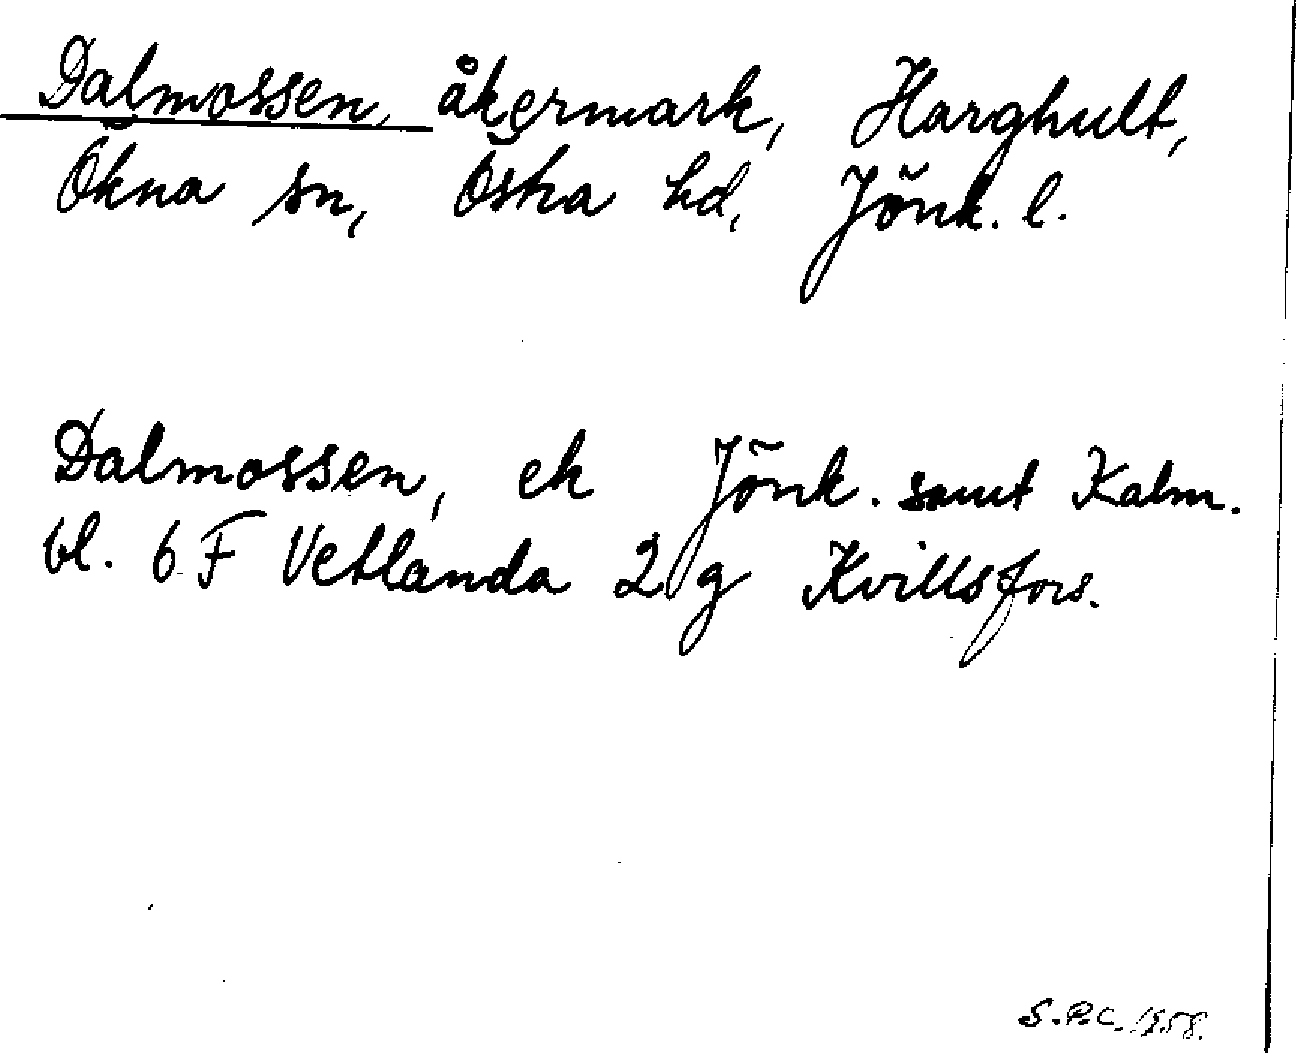 Dalmossen, åkermark, Harghult,
Ökna sn, Östra hd, Jönk. l.
Dalmossen, ek Jönk. samt Kalm.
bl. 6 F Vetlanda 2 g Kvillsfors.
S.P.C. 1958.